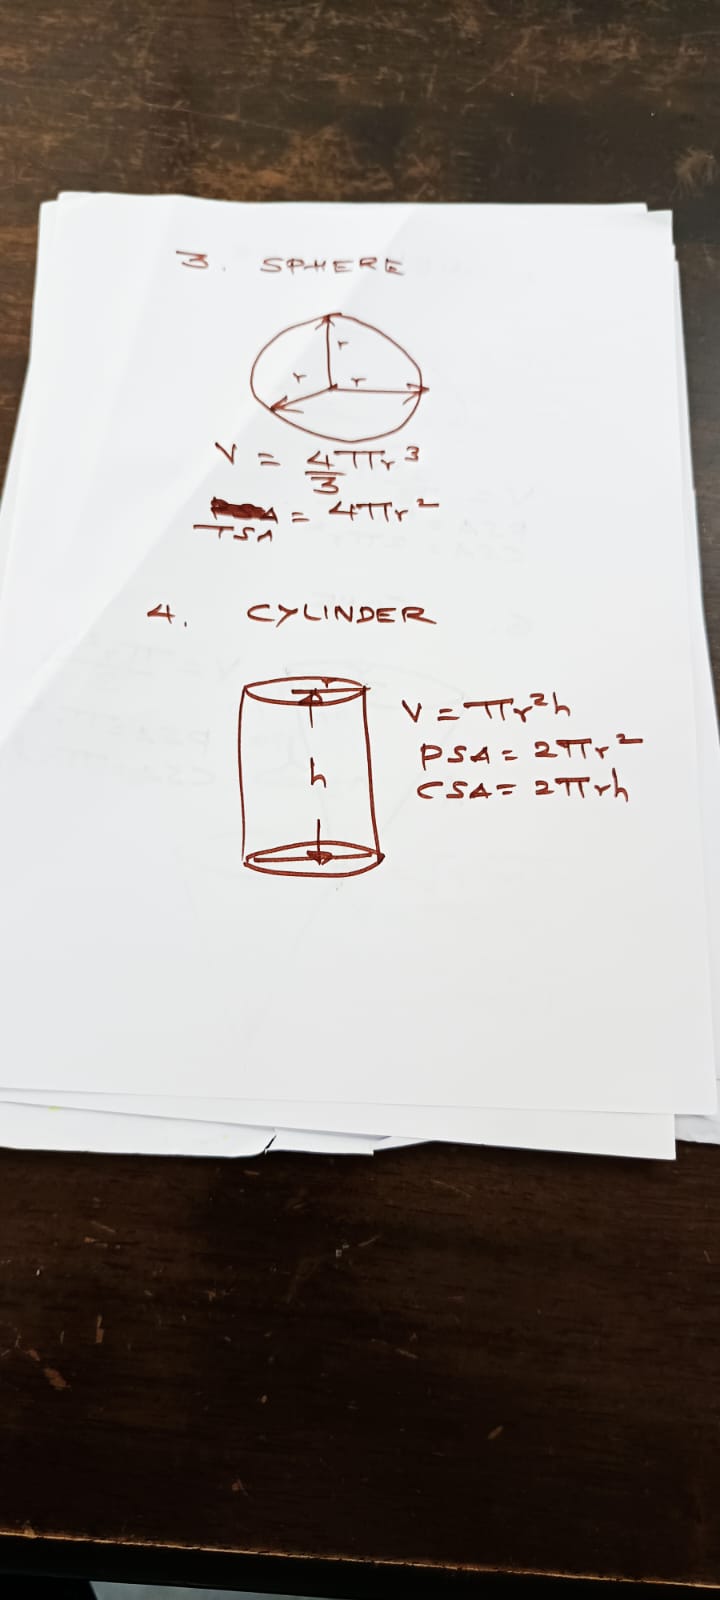 3. SPHERE
r
r r
V = 4/3 πr³
= 4πr²
TSA
4. CYLINDER
r
V = πr²h
PSA = 2πr²
h
CSA = 2πrh